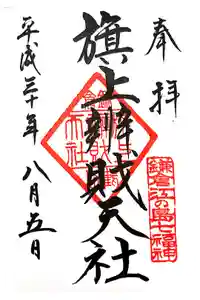 奉拝
旗上辨財天社
鎌倉江の島七福神
平成三十年八月五日